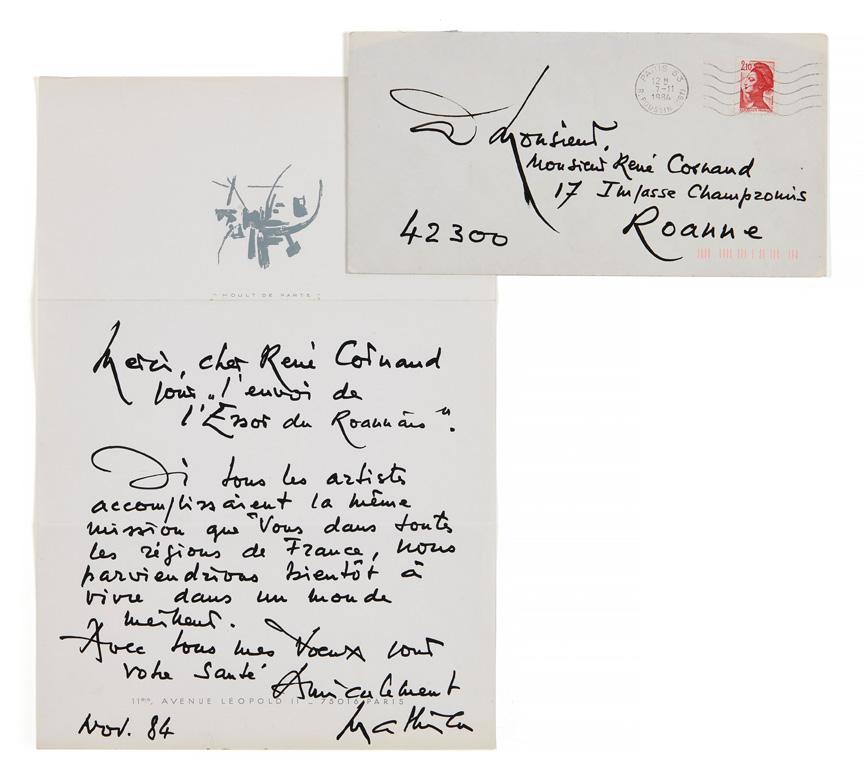 PARIS 63
12 H
7-11
1984
R. POUSSIN (16)
2,10
à Monsieur,
Monsieur René Cornand
17 Impasse Champromis
42300 Roanne
"HOULT DE PARTE"
Merci, cher René Cornand
pour "l'envoi de
l'Essor du Roannais".
Si tous les artistes
accomplissaient la même
mission que Vous dans toutes
les régions de France, nous
parviendrions bientôt à
vivre dans un monde
meilleur.
Avec tous mes Voeux pour
votre santé
Amicalement
11bis, AVENUE LÉOPOLD II _ 75016 PARIS
Nov. 84
Mathieu